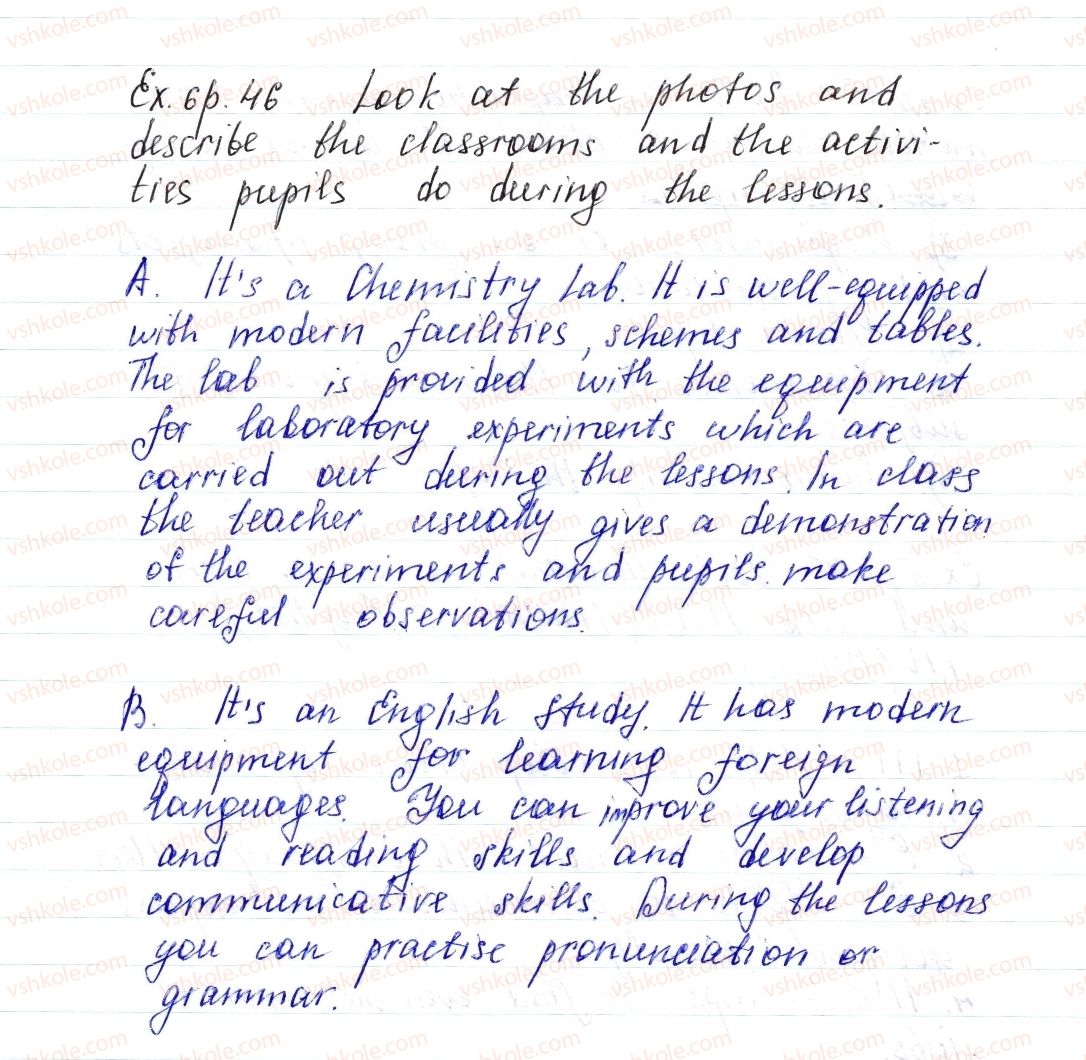 Ex. 6 p. 46 Look at the photos and
describe the classrooms and the activi-
ties pupils do during the lessons.
A. It's a Chemistry Lab. It is well-equipped
with modern facilities, schemes and tables.
The lab is provided with the equipment
for laboratory experiments which are
carried out during the lessons. In class
the teacher usually gives a demonstration
of the experiments and pupils make
careful observations.
B. It's an English study. It has modern
equipment for learning foreign
languages. You can improve your listening
and reading skills and develop
communicative skills. During the lessons
you can practise pronunciation or
grammar.